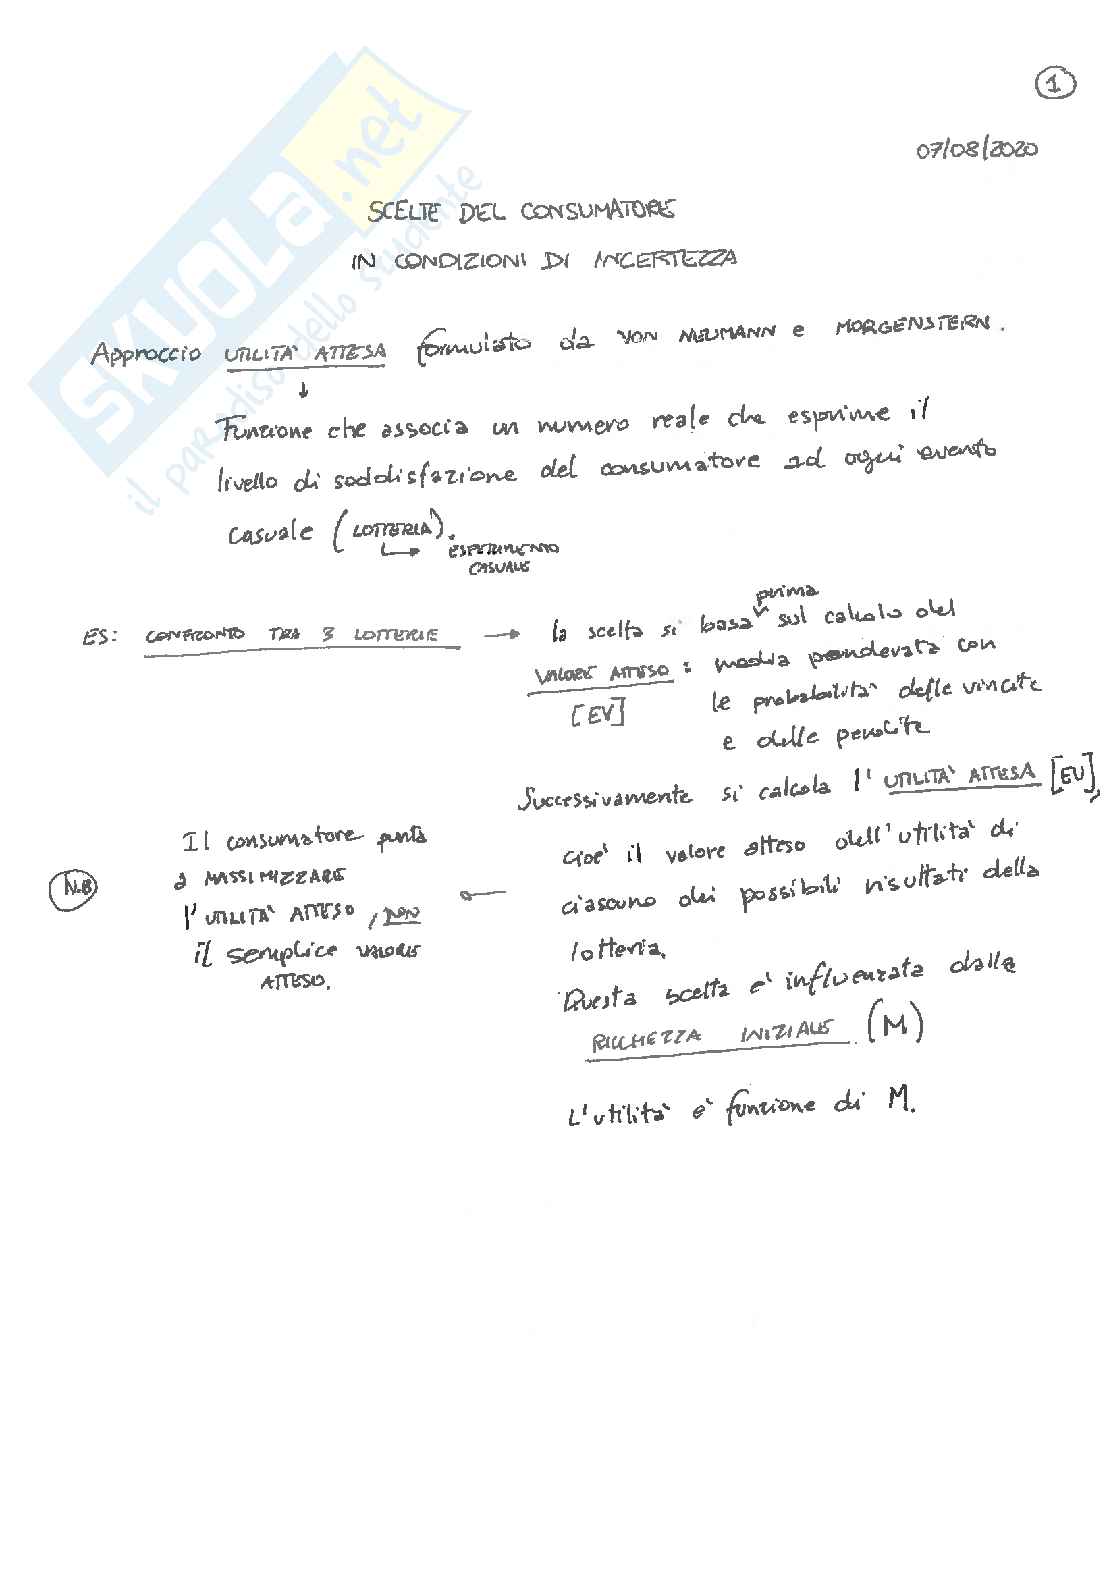 1
07/08/2020
SCELTE DEL CONSUMATORE
IN CONDIZIONI DI INCERTEZZA
Approccio UTILITA' ATTESA formulato da VON NEUMANN e MORGENSTERN.
Funzione che associa un numero reale che esprime il
livello di soddisfazione del consumatore ad ogni evento
casuale (LOTTERIA).
ESPERIMENTO
CASUALE
prima
ES: CONFRONTO TRA 3 LOTTERIE → la scelta si basa sul calcolo del
VALORE ATTESO : media ponderata con
[EV] le probabilità delle vincite
e delle perdite
Successivamente si calcola l'UTILITA' ATTESA [EU],
cioè il valore atteso dell'utilità di
ciascuno dei possibili risultati della
lotteria.
N.B
Il consumatore punta
a MASSIMIZZARE
l'UTILITA' ATTESO, NON
il semplice VALORE
ATTESO.
Questa scelta è influenzata dalla
RICCHEZZA INIZIALE. (M)
L'utilità è funzione di M.
SKUOLA.net
il paradiso dello studente